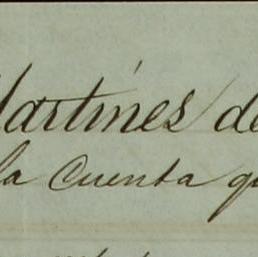 Martínes de
la Cuenta qu